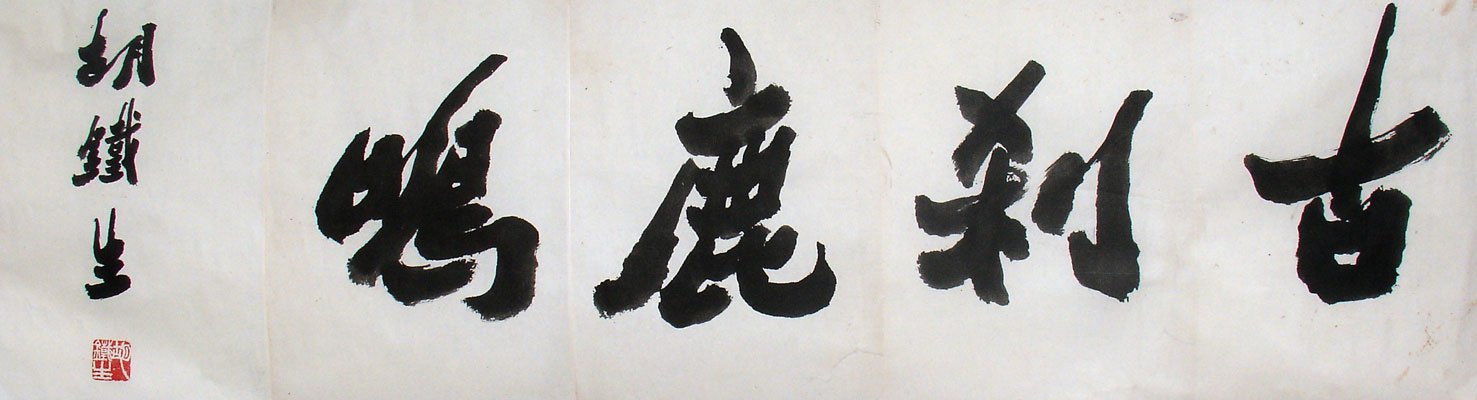 古刹鹿鳴
胡鐵生